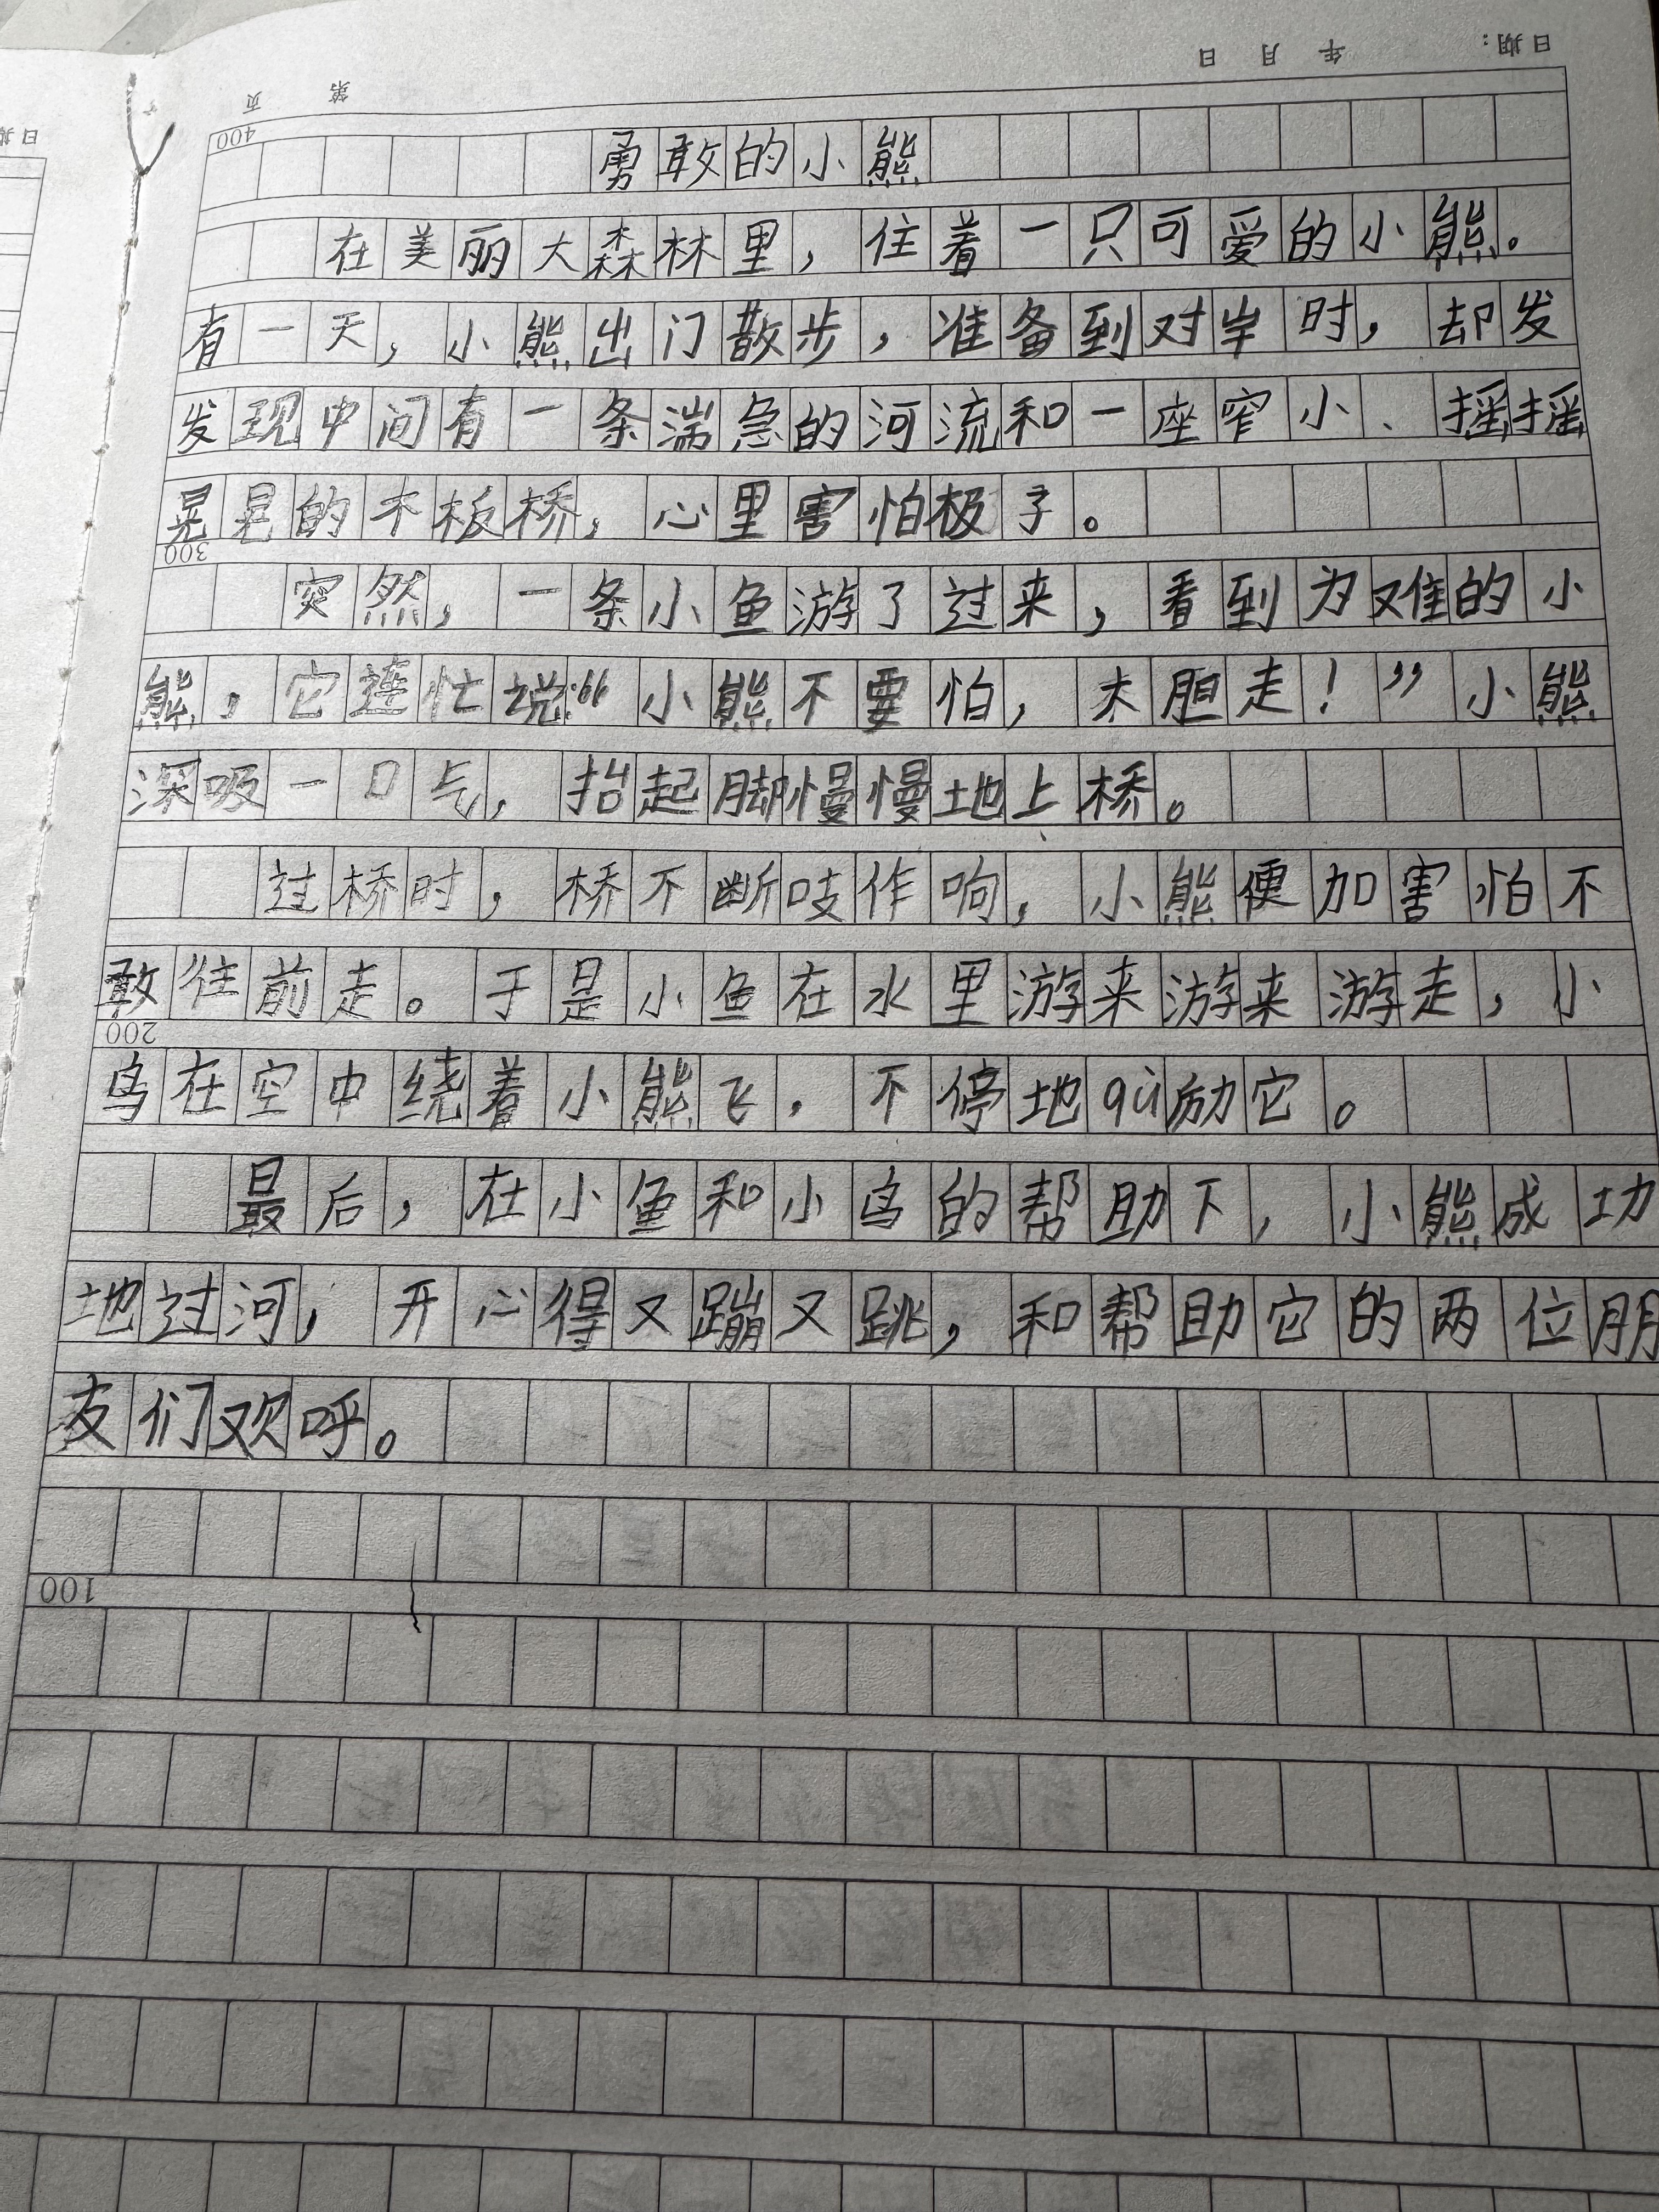 日期： 年 月 日
第 页
400
勇敢的小熊
在美丽大森林里，住着一只可爱的小熊。
有一天，小熊出门散步，准备到对岸时，却发
发现中间有一条湍急的河流和一座窄小、摇摇
晃晃的木板桥，心里害怕极了。
300
突然，一条小鱼游了过来，看到为难的小
熊，它连忙说：“小熊不要怕，大胆走！”小熊
深吸一口气，抬起脚慢慢地上桥。
过桥时，桥不断吱作响，小熊便加害怕不
敢往前走。于是小鱼在水里游来游来游走，小
200
鸟在空中绕着小熊飞，不停地gǔ励它。
最后，在小鱼和小鸟的帮助下，小熊成功
地过河，开心得又蹦又跳，和帮助它的两位朋
友们欢呼。
100